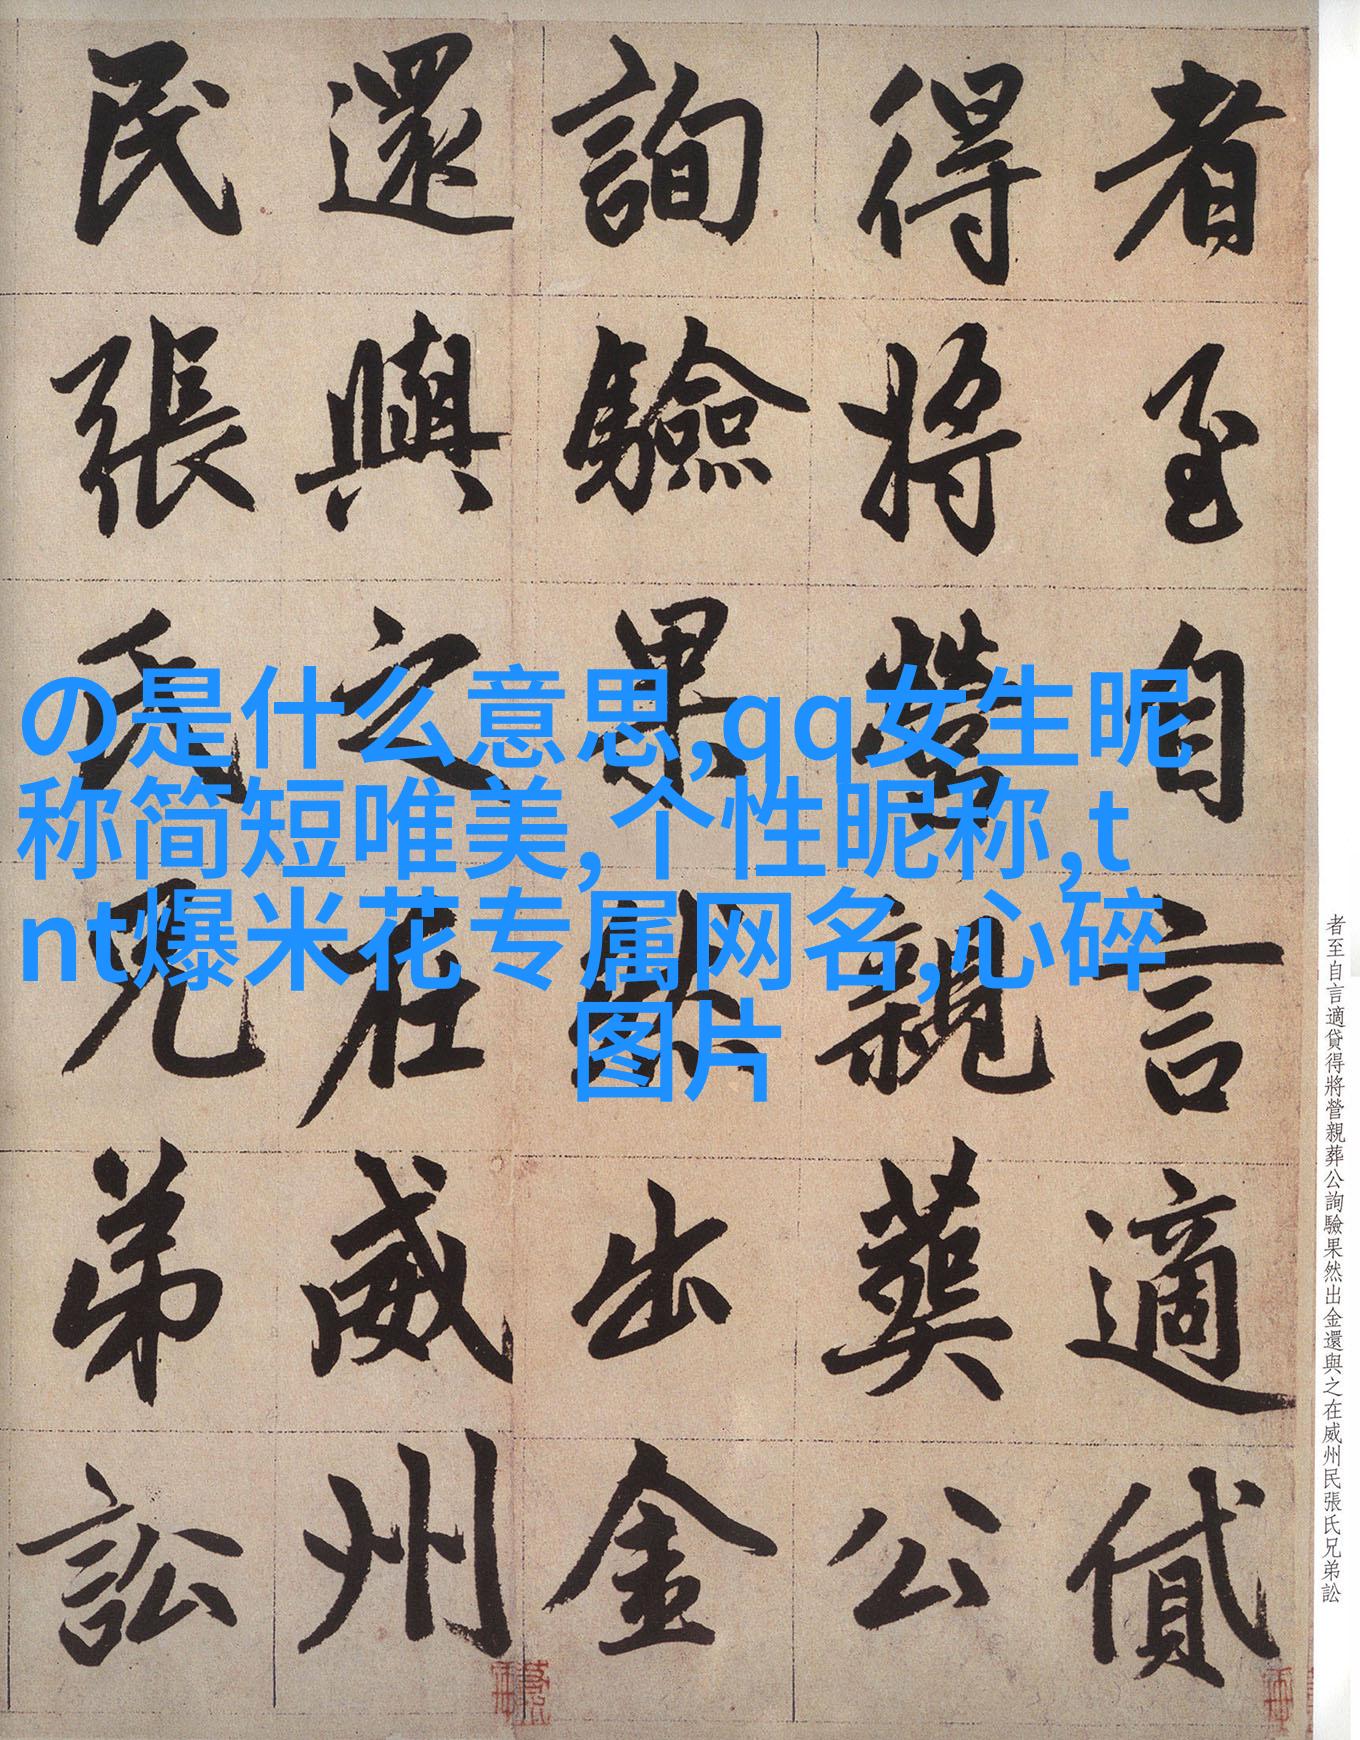 者至自言適貸
得將營親葬公
詢驗果然出金
還與之在威州
民張氏兄弟訟
の是什么意思,qq女生昵
称简短唯美,个性昵称,t
nt爆米花专属网名,心碎
图片
者至自言適貸得將營親葬公詢驗果然出金還與之在威州民張氏兄弟訟